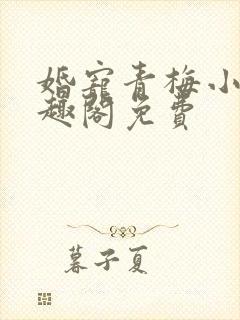 婚宠青梅小
趣阁免費
暮子夏